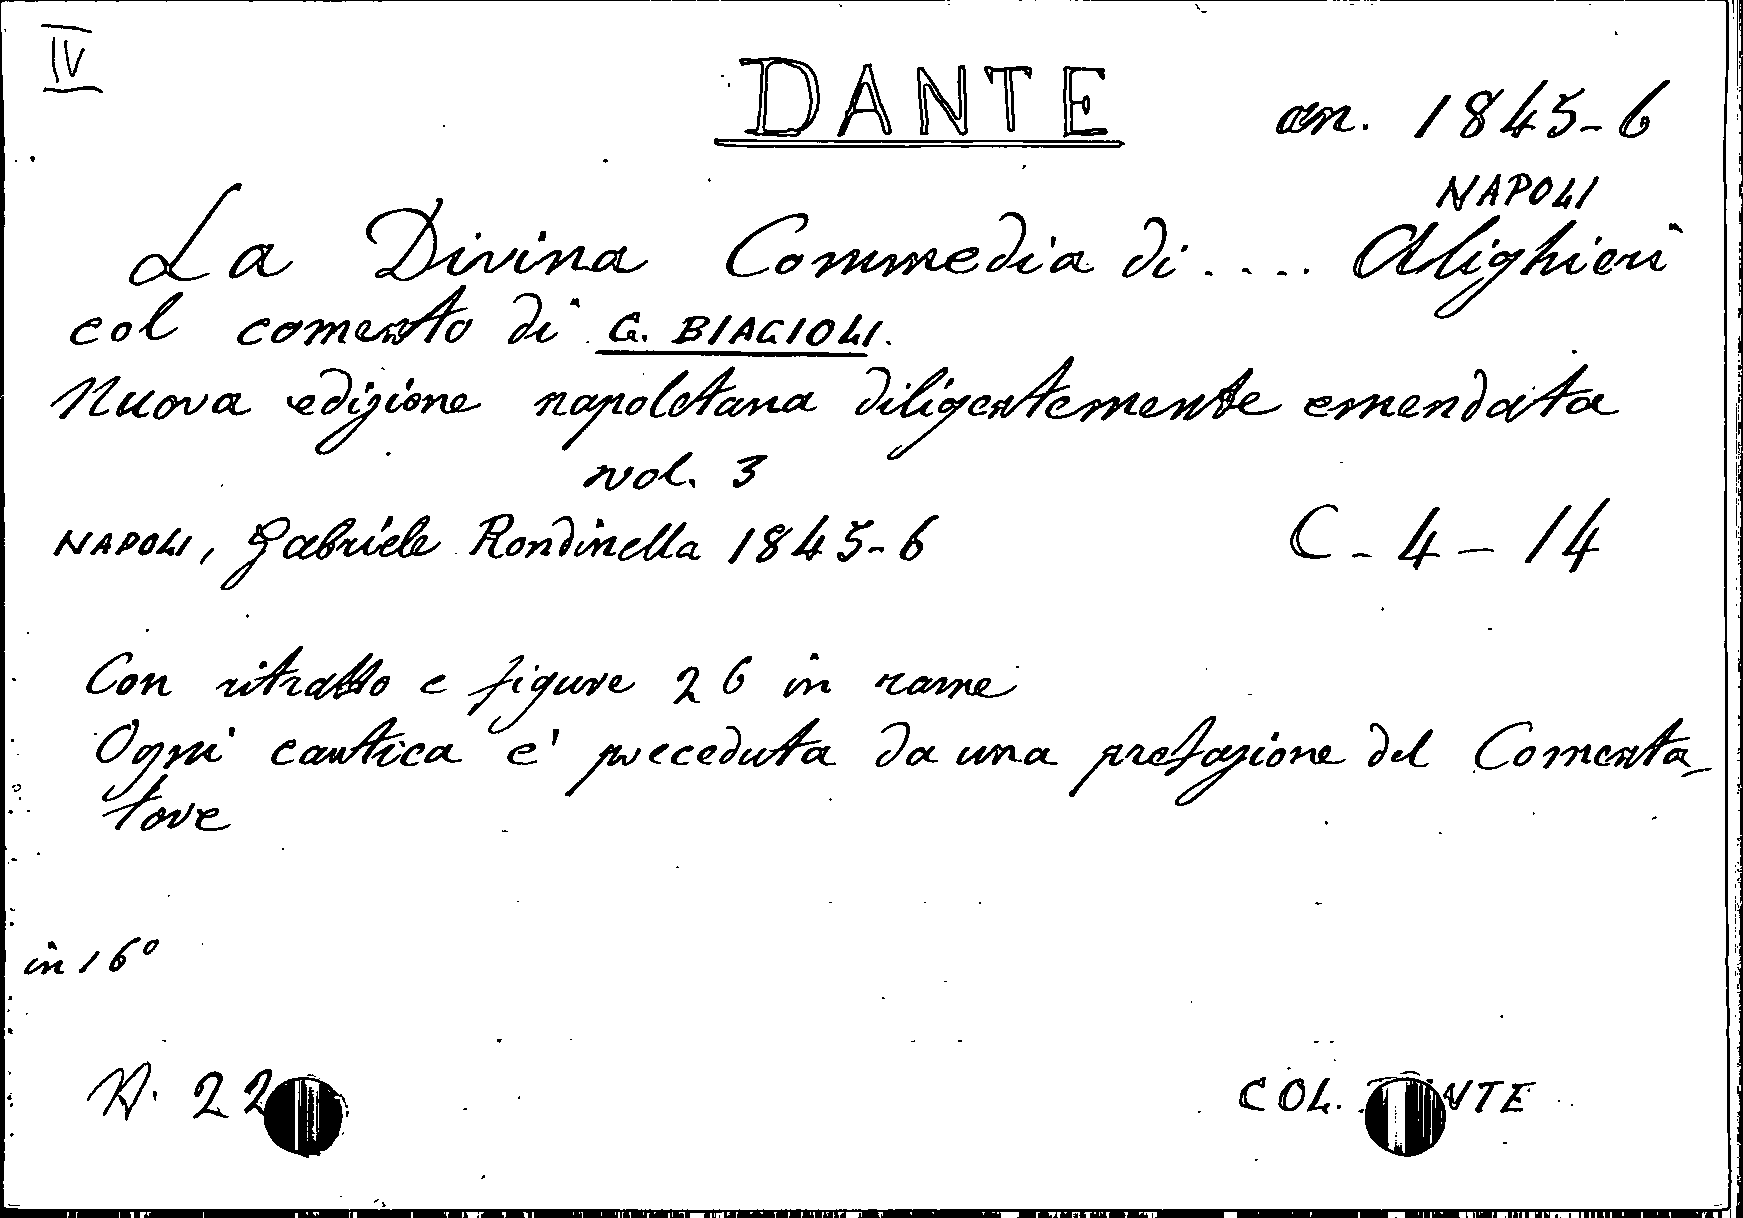 IV
DANTE
an. 1845-6
NAPOLI
La Divina Commedia di .... Alighieri
col comento di G. BIAGIOLI.
Nuova edizione napoletana diligentemente emendata
vol. 3
NAPOLI, Gabriele Rondinella 1845-6
C - 4 - 14
Con ritratto e figure 26 in rame
Ogni cantica e' preceduta da una prefazione del Comenta-
tore
in 16°
N. 22
COL.